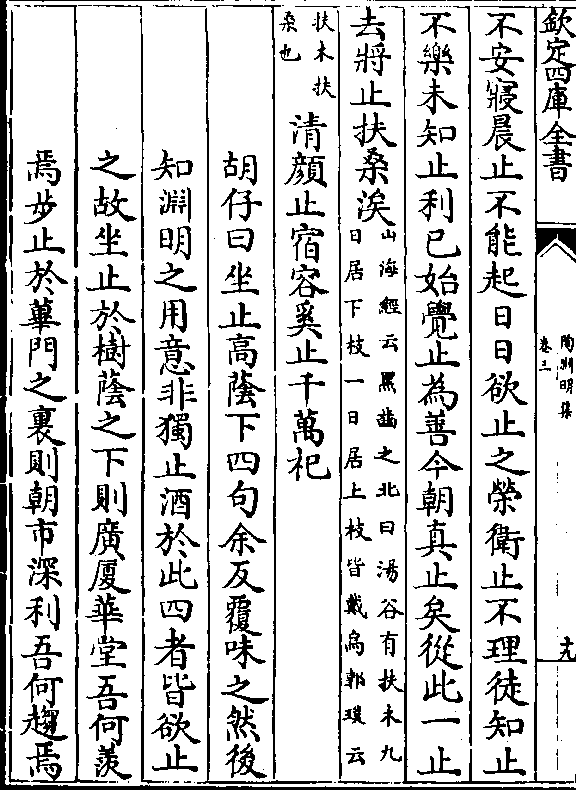 欽定四庫全書
陶淵明集
卷三
十九
不安寢晨止不能起日日欲止之榮衛止不理徒知止
不樂未知止利已始覺止為善今朝真止矣從此一止
去將止扶桑涘
山海經云黑齒之北曰湯谷有扶木九
日居下枝一日居上枝皆戴烏郭璞云
扶木扶
桑也
清顔止宿容奚止千萬祀
胡仔曰坐止高蔭下四句余反覆味之然後
知淵明之用意非獨止酒於此四者皆欲止
之故坐止於樹蔭之下則廣厦華堂吾何羨
焉步止於蓽門之裏則朝市深利吾何趨焉